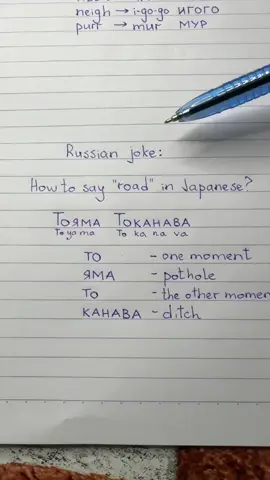 neigh → i-go-go ИГОГО
purr → mur МУР
Russian joke:
How to say "road" in Japanese?
ТОЯМА ТОКАНАВА
To ya ma To ka na va
ТО - one moment
ЯМА - pothole
ТО - the other momen
КАНАВА - ditch